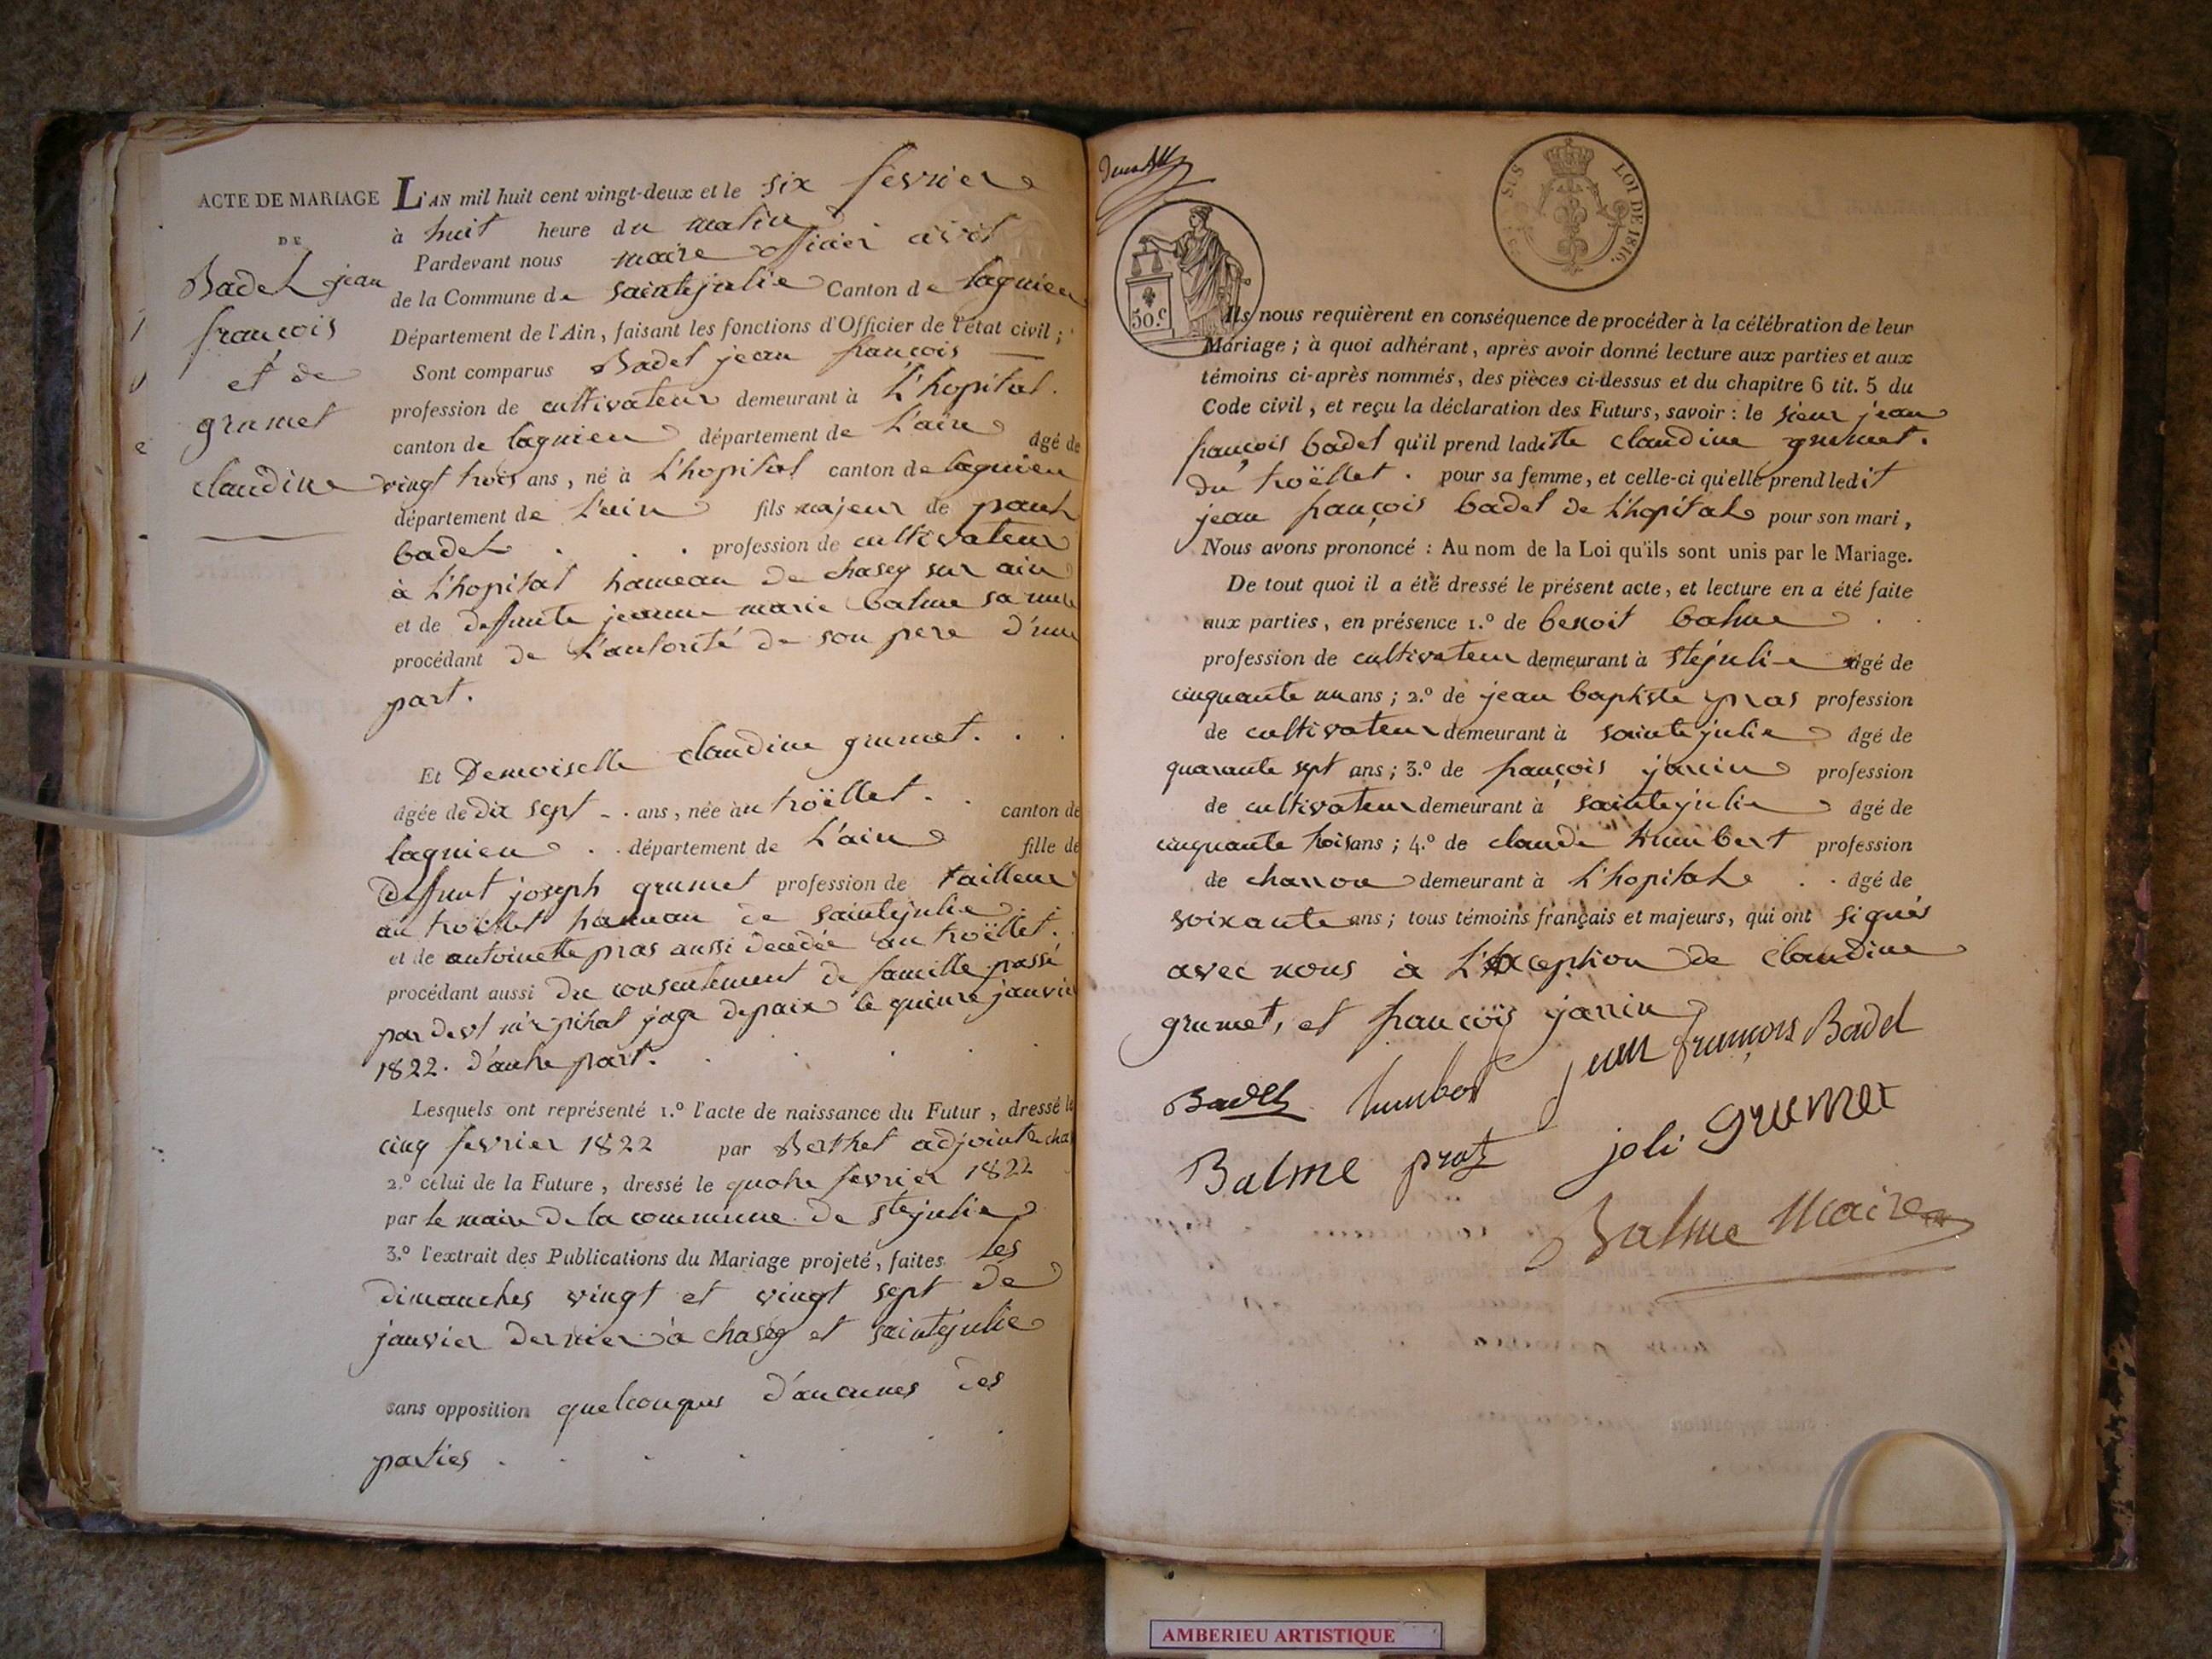 ACTE DE MARIAGE
DE
Badel jean
françois
et de
grumet
claudine
L'AN mil huit cent vingt-deux et le six fevrier
à huit heure du matin
Pardevant nous maire officier civil
de la Commune de saintejulie Canton de lagnieu
Département de l'Ain, faisant les fonctions d'Officier de l'état civil ;
Sont comparus Badel jean françois
profession de cultivateur demeurant à L'hopital.
canton de lagnieu département de L'ain âgé de
vingt trois ans, né à L'hopital canton de lagnieu
département de L'ain fils majeur de paul
badel . . . profession de cultivateur
à L'hopital hameau de chasey sur ain
et de deffunte jeanne marie balme sa mere
procédant de L'autorité de son pere d'une
part.
Et Demoiselle claudine grumet. . .
âgée de dix sept ans, née au troëllet . . canton de
lagnieu . . département de L'ain fille de
deffunt joseph grumet profession de tailleur
au troëllet hameau de saintejulie
et de antoinette pras aussi decedée au troëllet.
procédant aussi du consentement de famille passé
par devt mr pital juge depaix le quinze janvier
1822. d'autre part.
Lesquels ont représenté 1.º l'acte de naissance du Futur, dressé le
cinq fevrier 1822 par Berthet adjoint de cha
2.º celui de la Future, dressé le quatre fevrier 1822
par le maire de la commune de stejulie
3.º l'extrait des Publications du Mariage projeté, faites les
dimanches vingt et vingt sept de
janvier dernier à chasey et saintejulie
sans opposition quelconques d'aucunes des
parties .
SUS
LOI DE 1816.
50.c
Ils nous requièrent en conséquence de procéder à la célébration de leur
Mariage ; à quoi adhérant, après avoir donné lecture aux parties et aux
témoins ci-après nommés, des pièces ci-dessus et du chapitre 6 tit. 5 du
Code civil, et reçu la déclaration des Futurs, savoir : le sieur jean
françois badel qu'il prend laditte claudine grumet.
du troëllet . pour sa femme, et celle-ci qu'elle prend ledit
jean françois badel de L'hopital pour son mari,
Nous avons prononcé : Au nom de la Loi qu'ils sont unis par le Mariage.
De tout quoi il a été dressé le présent acte, et lecture en a été faite
aux parties, en présence 1.º de benoit balme
profession de cultivateur demeurant à stejulie âgé de
cinquante un ans ; 2.º de jean baptiste pras profession
de cultivateur demeurant à saintejulie âgé de
quarante sept ans ; 3.º de françois janin profession
de cultivateur demeurant à saintejulie âgé de
cinquante trois ans ; 4.º de claude humbert profession
de charron demeurant à L'hopital . . âgé de
soixante ans ; tous témoins français et majeurs, qui ont signés
avec nous à L'exception de claudine
grumet, et françois janin
jean françois Badel
Badel humbert
Balme prat joli grumet
Balme Maire
AMBERIEU ARTISTIQUE